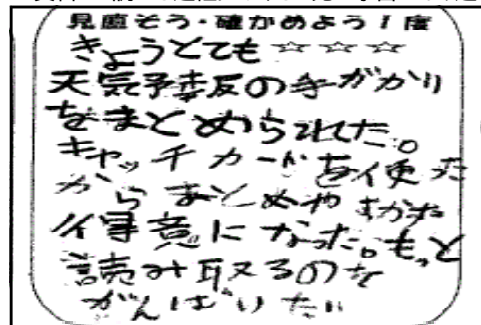 見直そう・確かめよう！度
きょうとても☆☆☆
天気予報の手がかり
をまとめられれた。
キャッチカードを使った
からまとめやすかた
得意になった。もっと
読み取るのを
がんばりたい